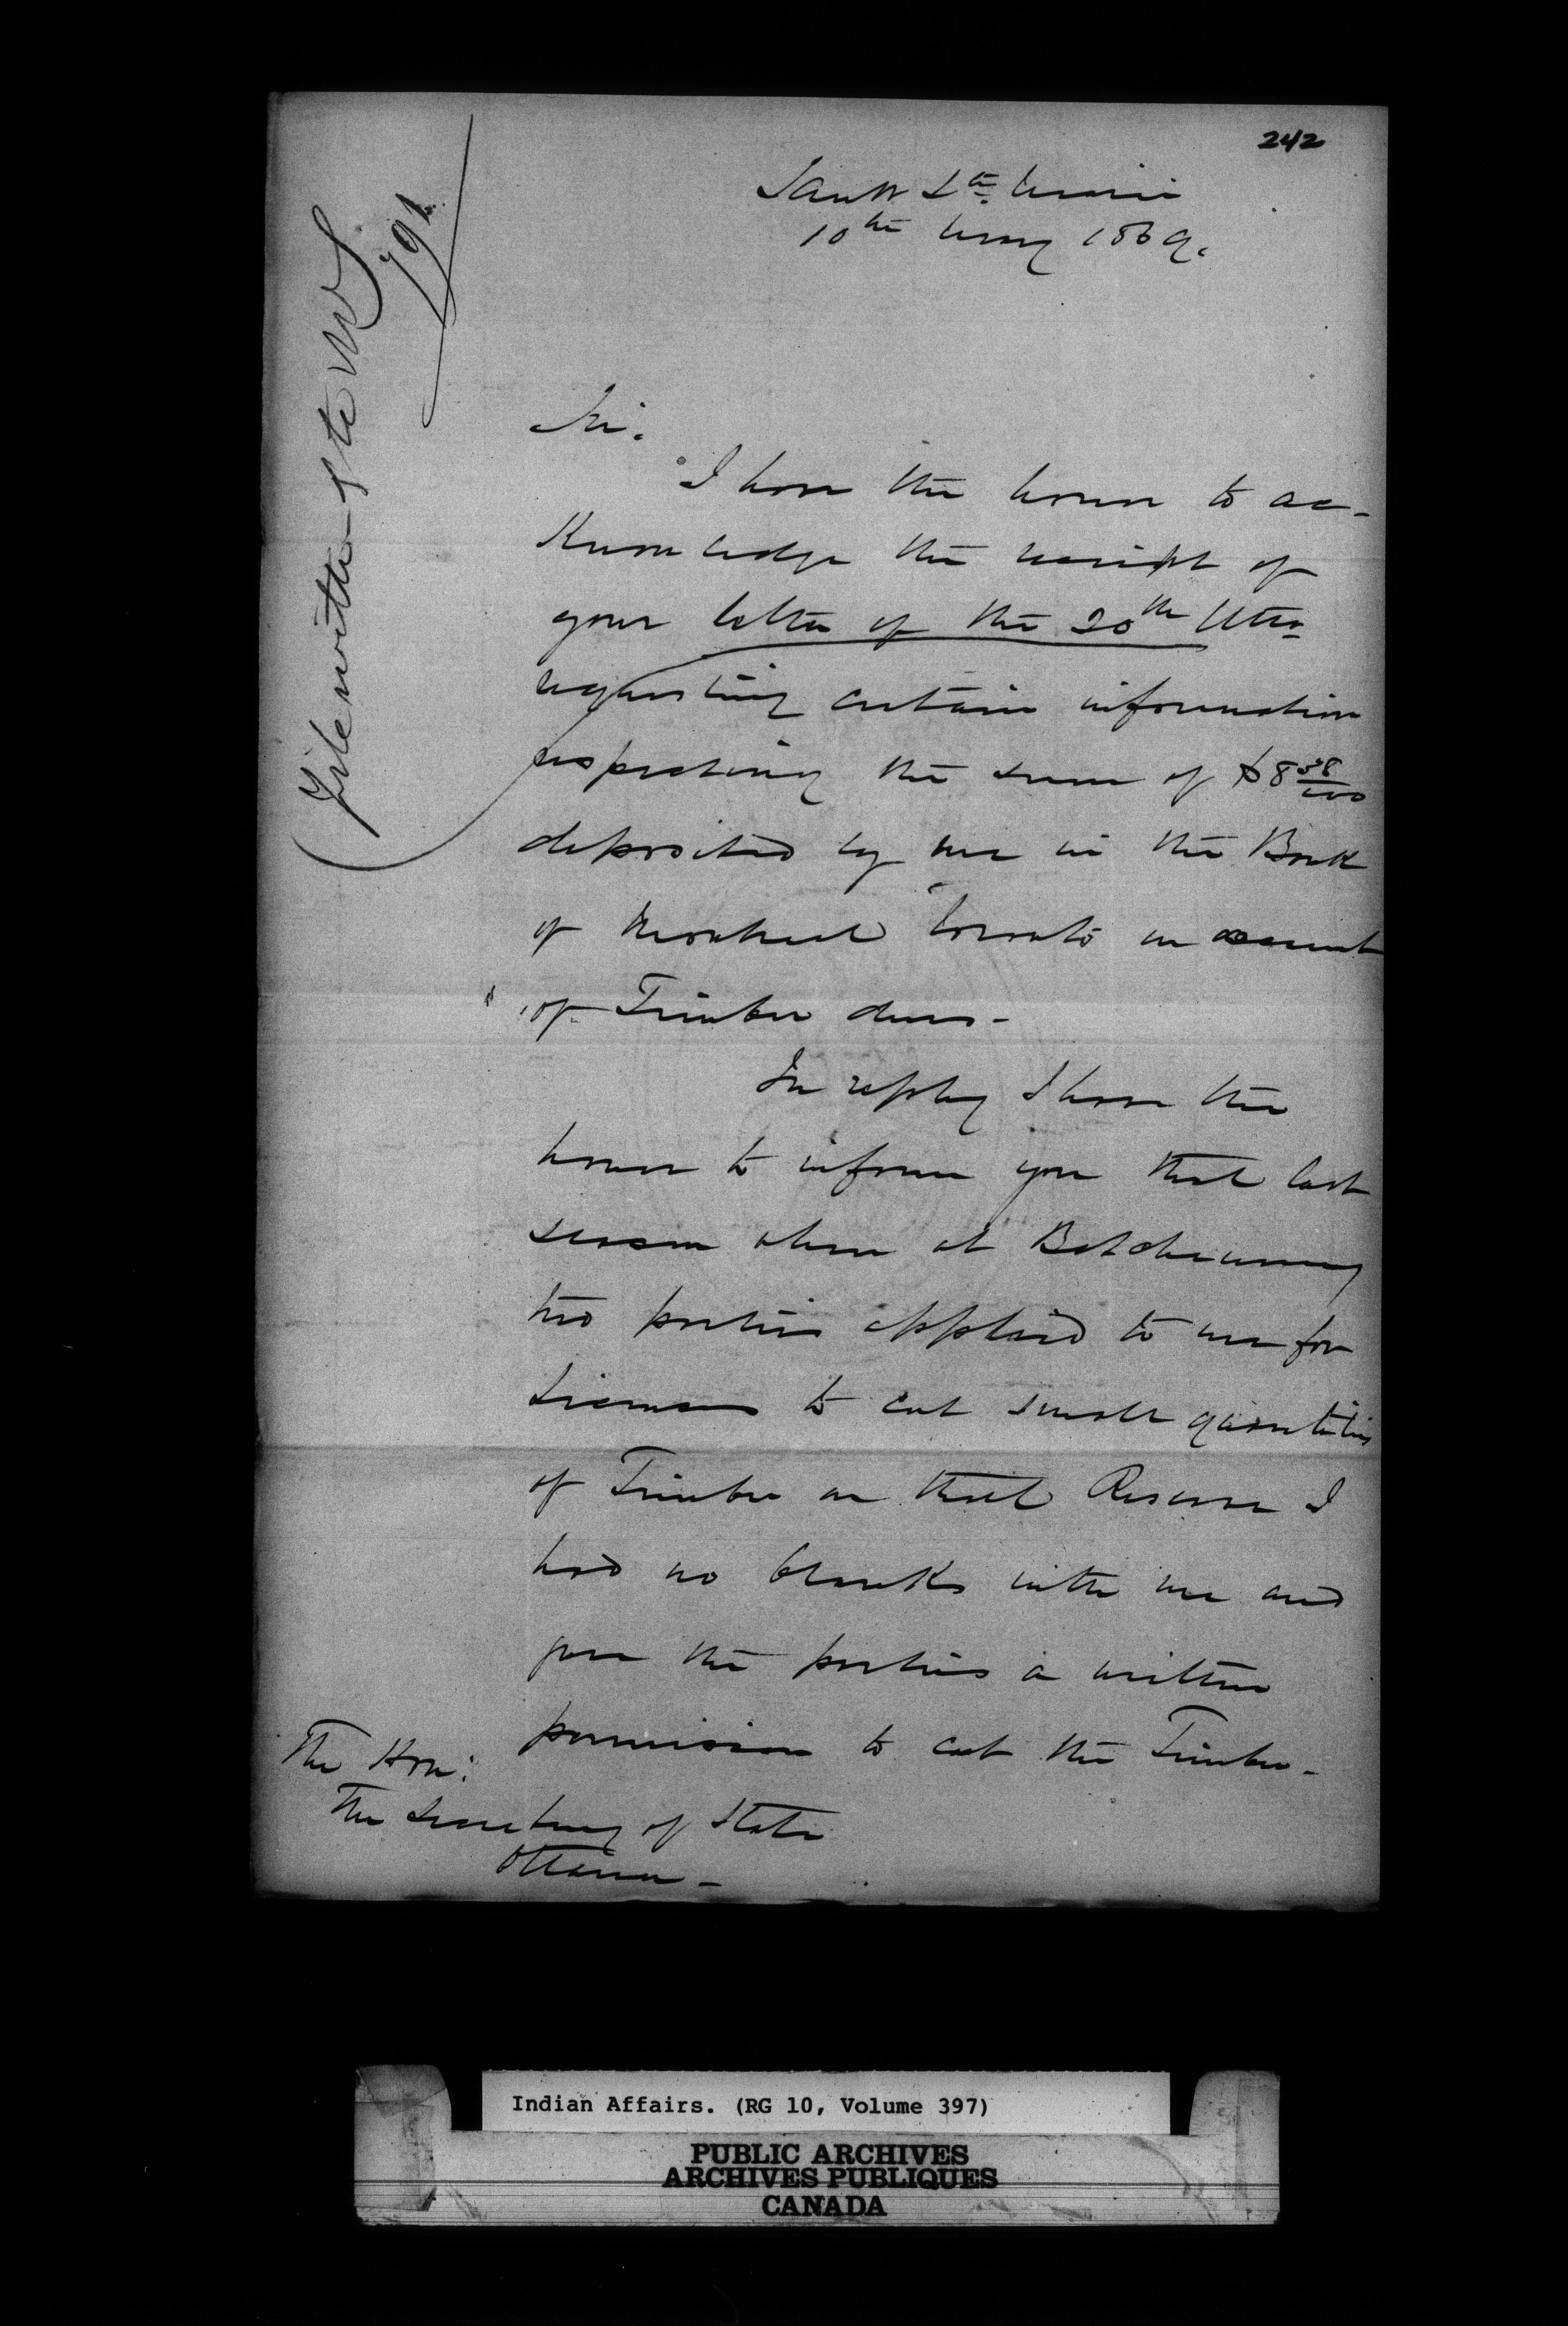 242
Sault Ste. Marie
10th May 1869.
File with
791
Sir.
I have the honor to ac-
Knowledge the receipt of
your letter of the 20th Ulto
requesting certain information
respecting the sum of $8 38/100
deposited by me in the Bank
of Montreal Toronto on account
of Timber dues -
In reply I have the
honor to inform you that last
season when at Batchewanny
two parties applied to me for
Licenses to cut small quantities
of Timber on that Reserve I
had no blanks with me and
gave the parties a written
permission to cut the Timber -
The Hon:
The Secretary of State
Ottawa -
Indian Affairs. (RG 10, Volume 397)
PUBLIC ARCHIVES
ARCHIVES PUBLIQUES
CANADA